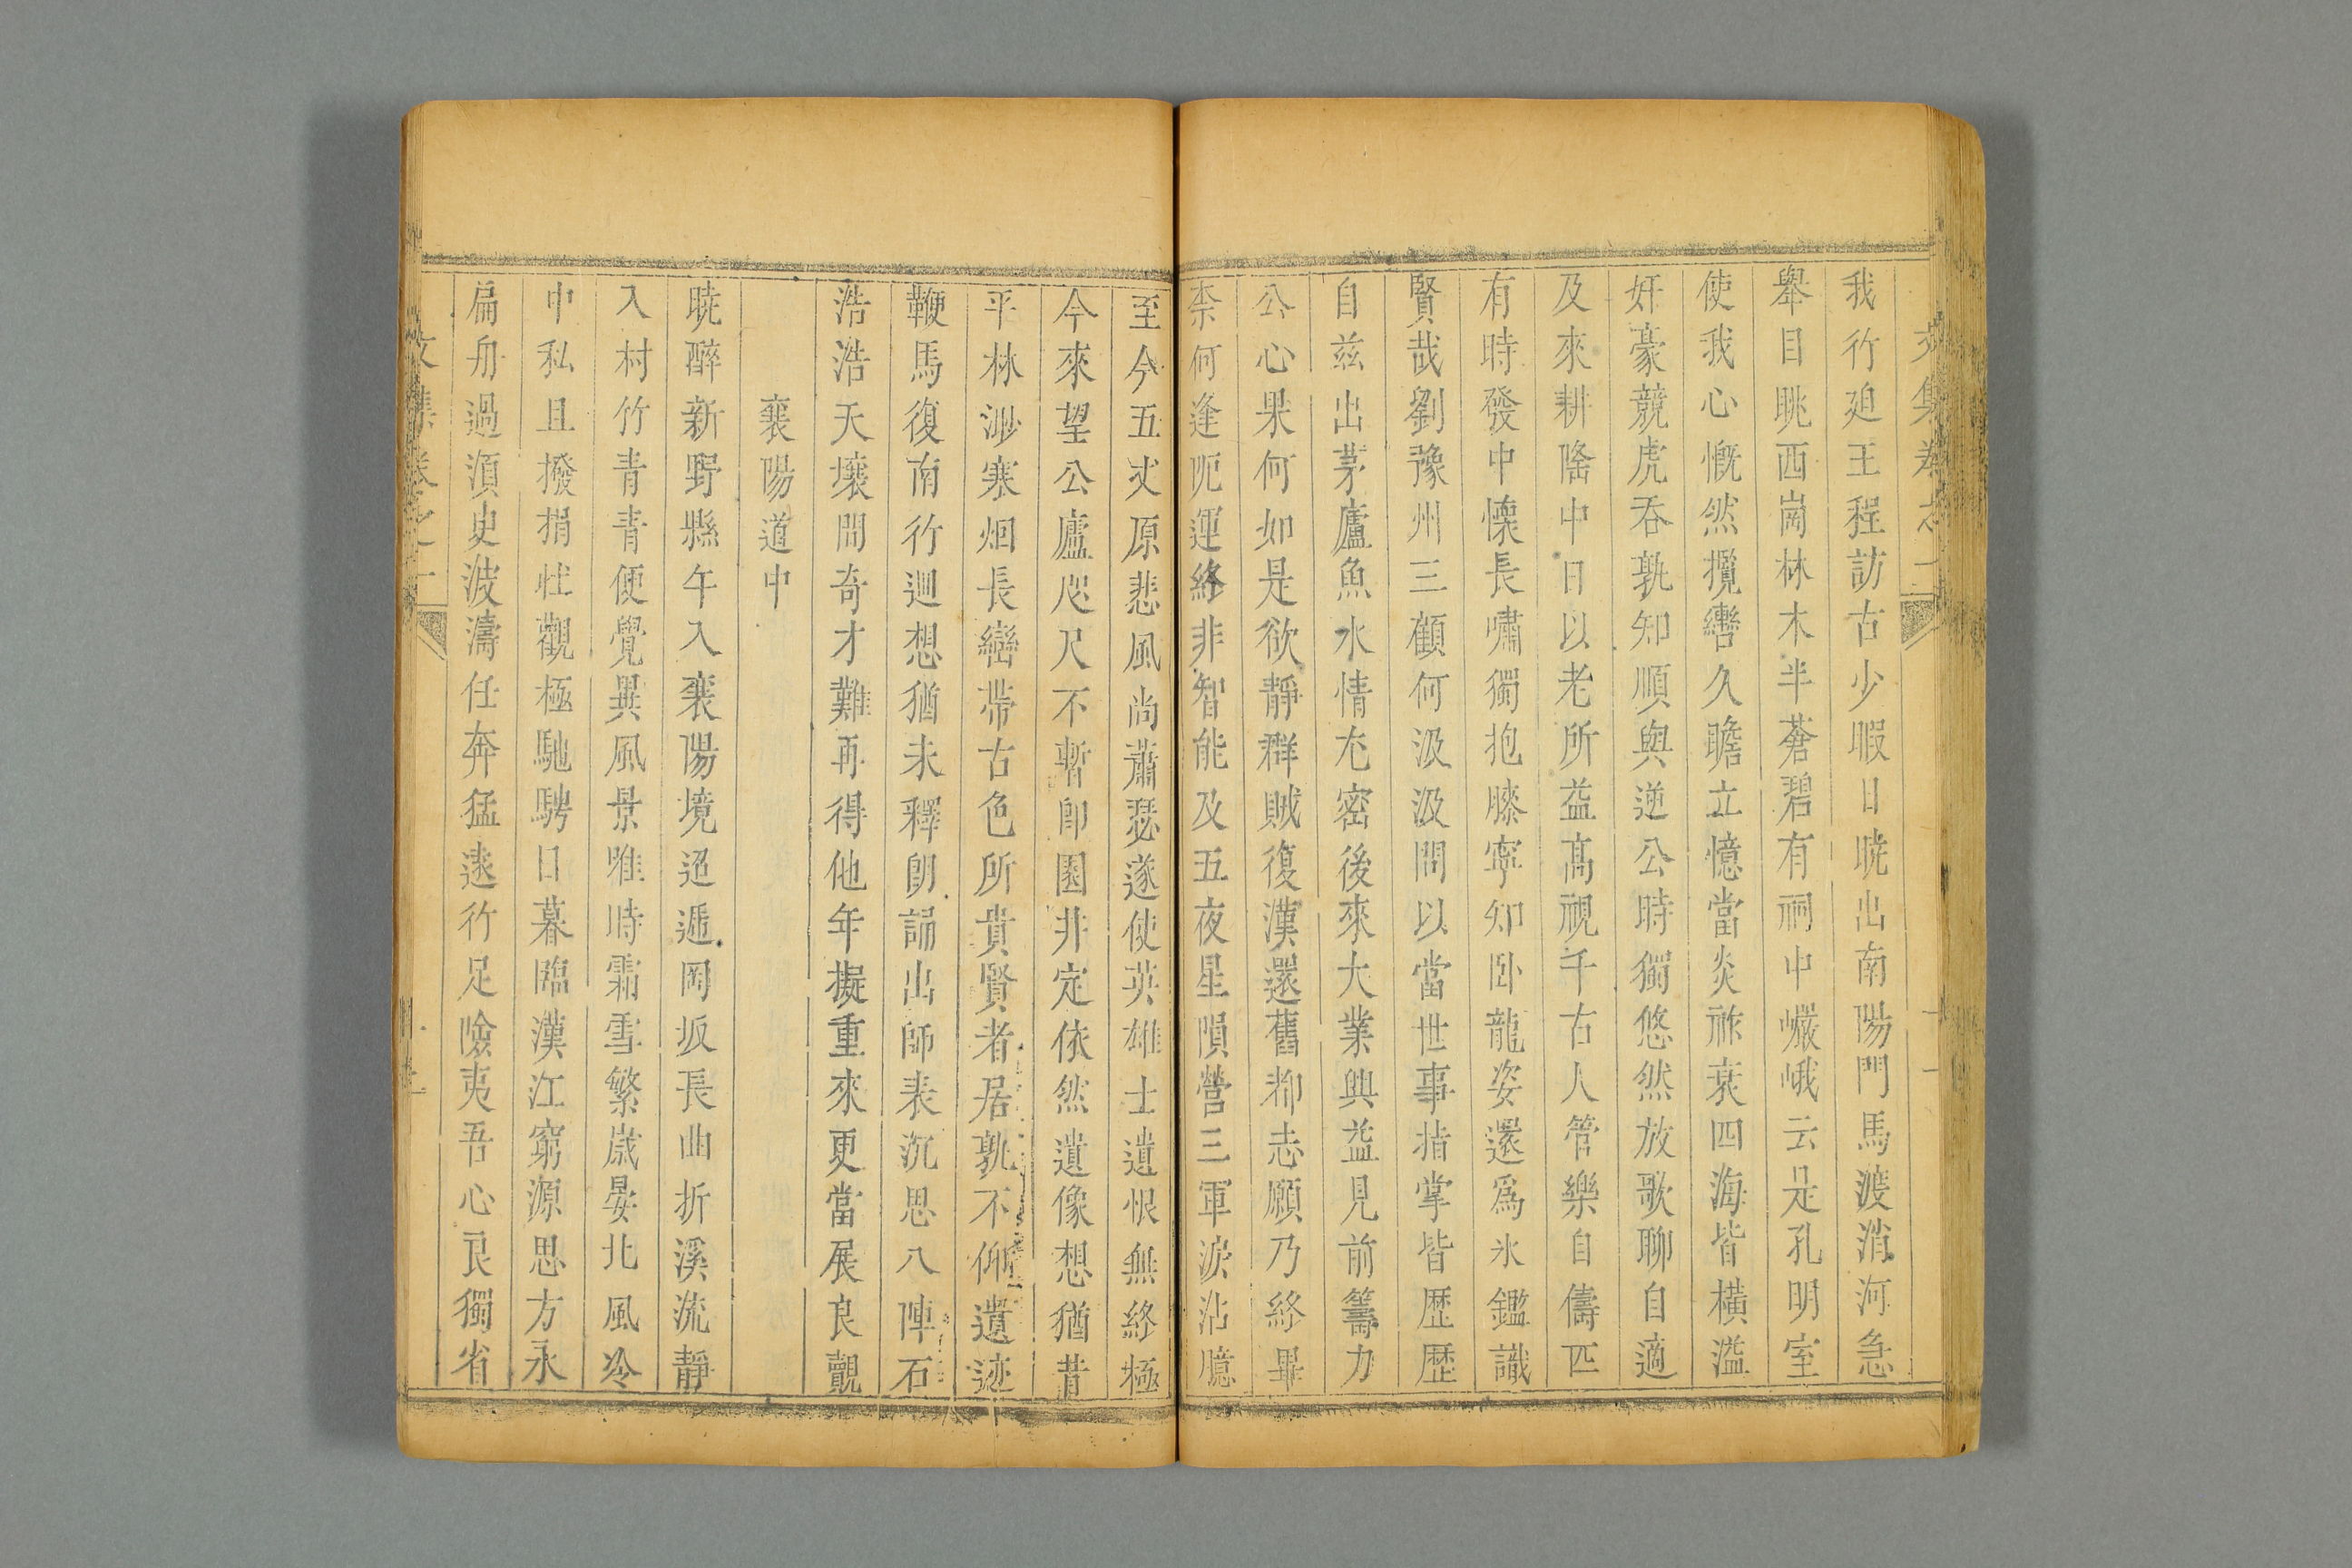 文集卷之一
我行廹王程訪古少暇日曉出南陽門馬渡消河急
舉目眺西崗林木半蒼碧有祠中巖峨云是孔明室
使我心慨然攬轡久瞻立憶當炎祚衰四海皆橫溢
奸豪競虎吞孰知順與逆公時獨悠然放歌聊自適
及來耕隆中日以老所益高視千古人管樂自儔匹
有時發中懐長嘯獨抱膝寧知卧龍姿還爲氷鑑識
賢哉劉豫州三顧何汲汲問以當世事指掌皆歴歴
自兹出茅廬魚水情尤密後來大業興益見前籌力
公心果何如是欲靜群賊復漢還舊都志願乃終畢
柰何逢阨運終非智能及五夜星隕營三軍淚沾臆
至今五丈原悲風尚蕭瑟遂使英雄士遺恨無終極
今來望公廬咫尺不暫卽園非定依然遺像想猶昔
平林渺寒烟長巒帶古色所貴賢者居孰不仰遺迹
鞭馬復南行迴想猶未釋朗誦出師表沉思八陣石
浩浩天壤間奇才難再得他年擬重來更當展良覿
襄陽道中
曉醉新野縣午入襄陽境迢遞岡坂長曲折溪流靜
入村竹青青便覺異風景唯時霜雪繁歳晏北風冷
中私且撥捐壯觀極馳騁日暮臨漢江窮源思方永
扁舟過湏史波濤任奔猛逺行足險夷吾心良獨省
文集卷之一